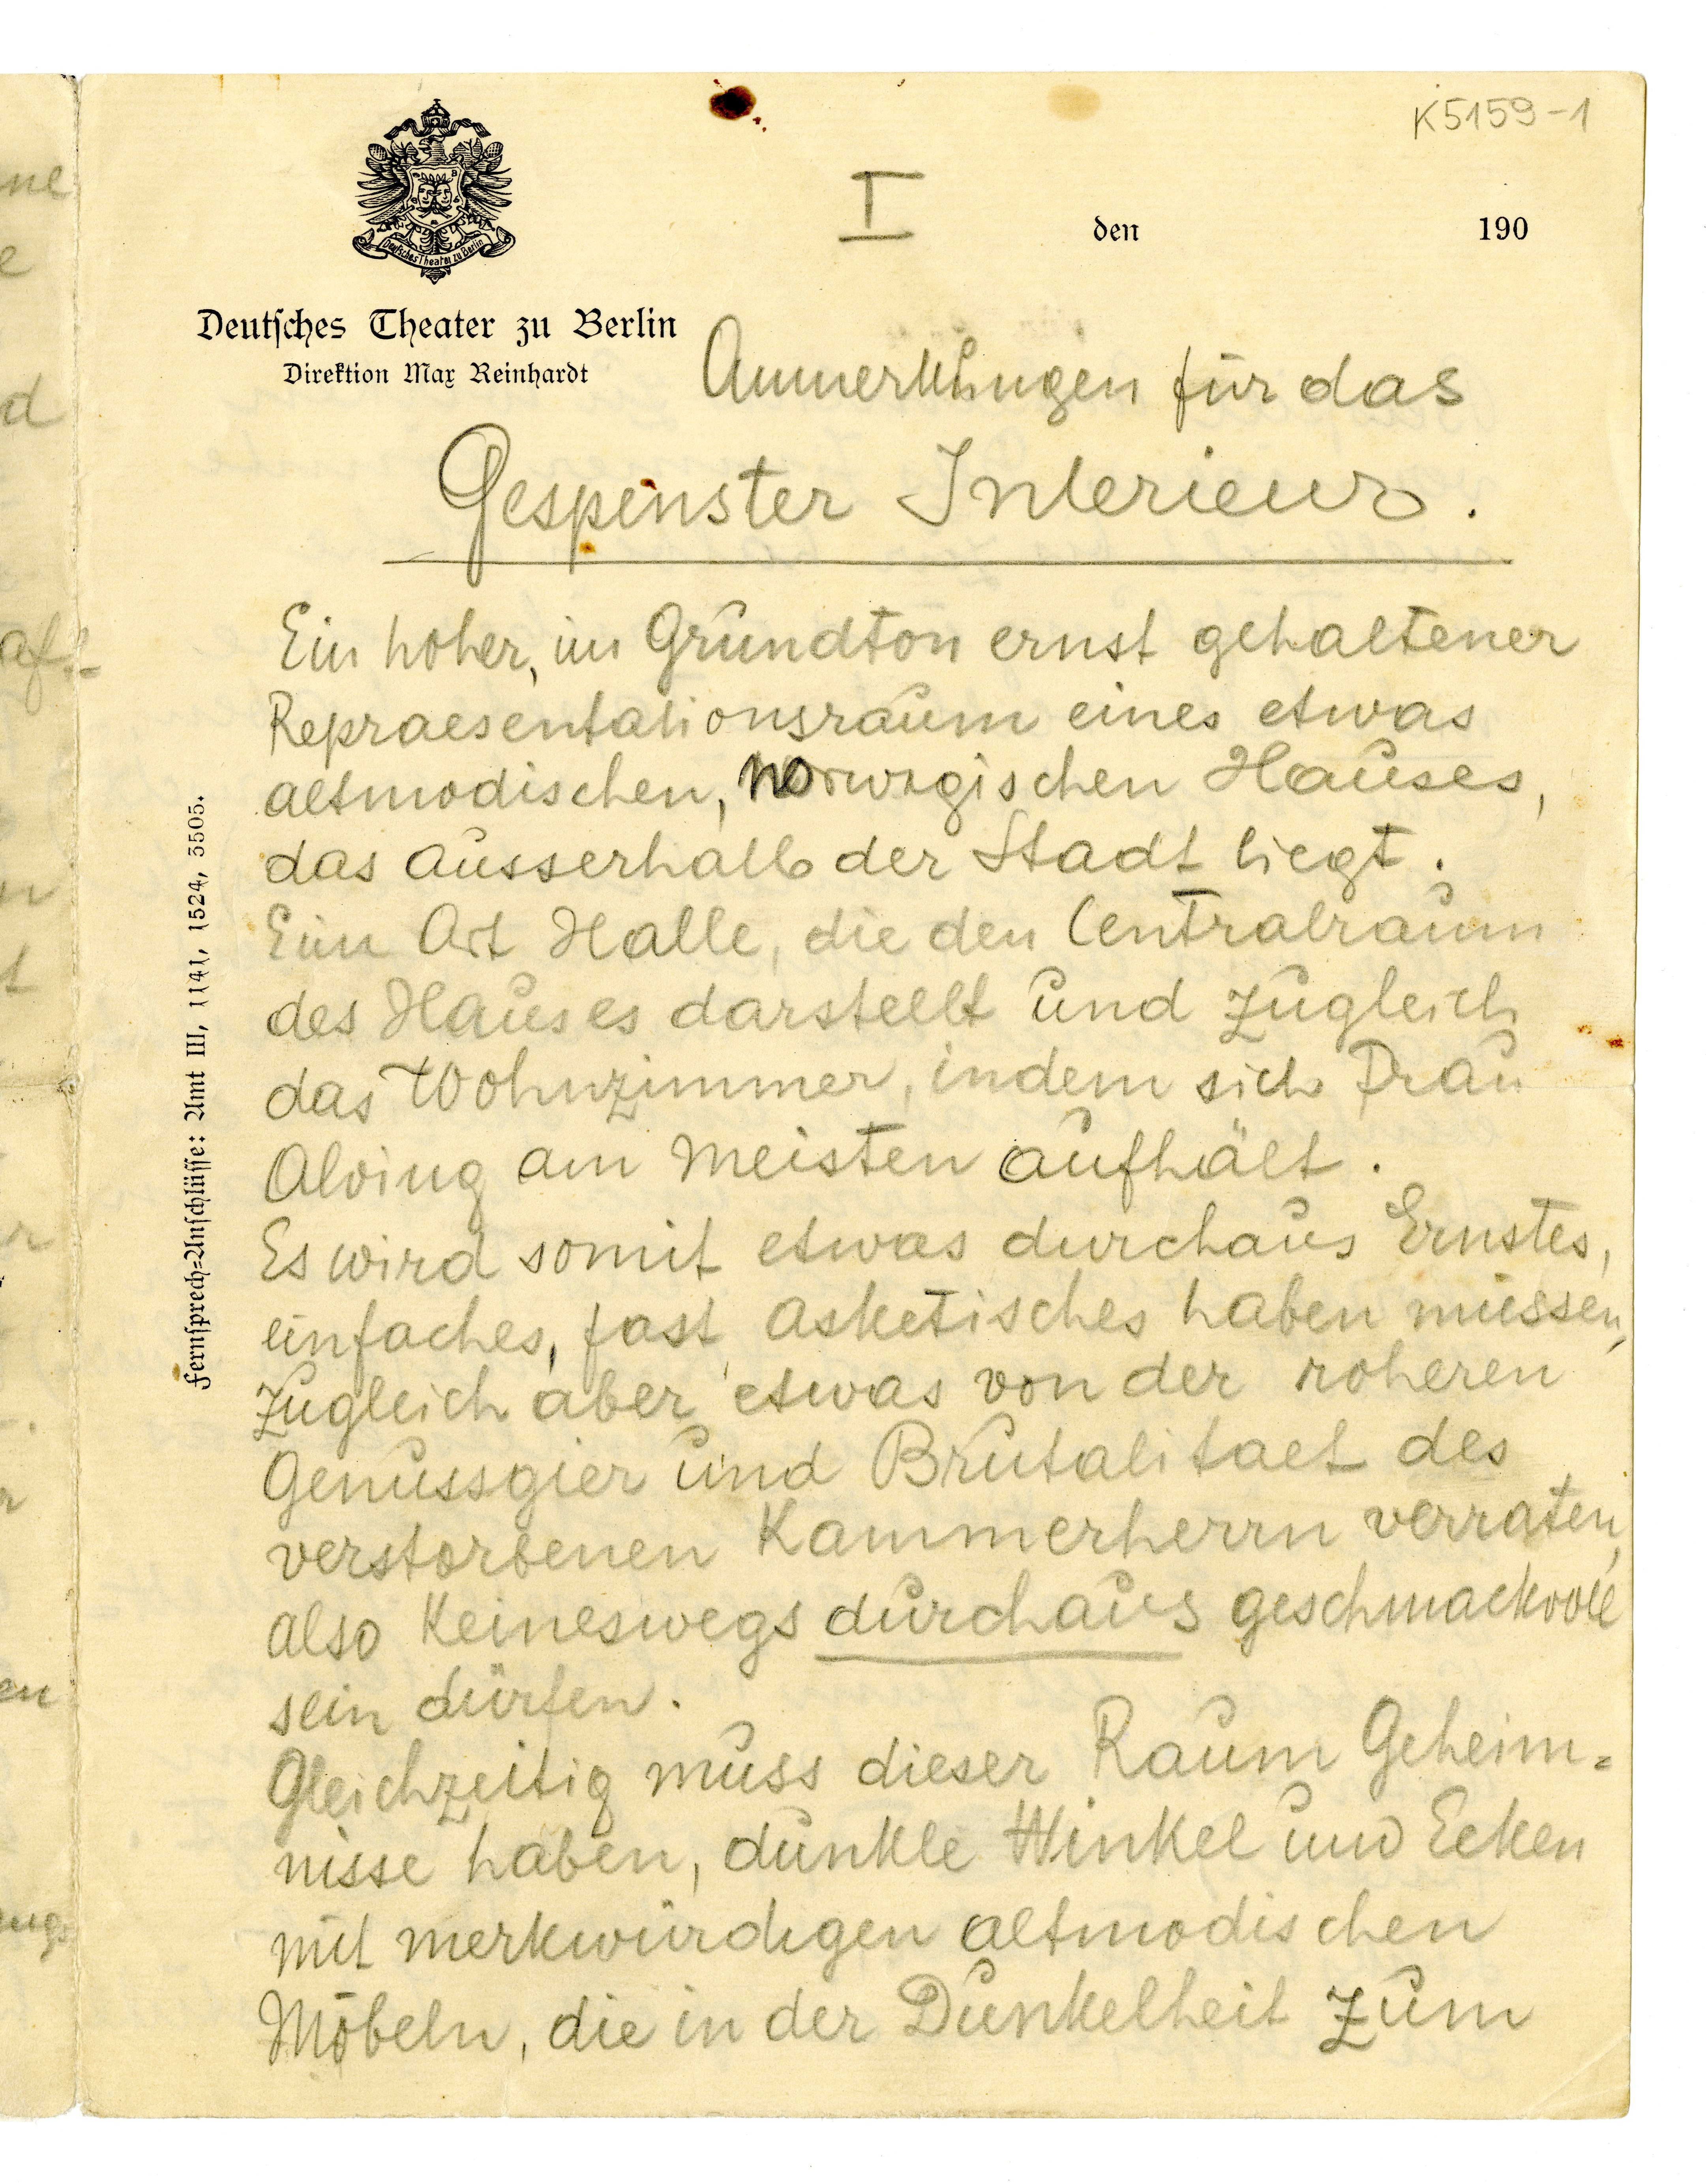 K5159-1
I
den 190
Deutsches Theater zu Berlin
Deutsches Theater zu Berlin
Direktion Max Reinhardt
Anmerkungen für das
Gespenster Interieur.
Ein hoher, im Grundton ernst gehaltener
Repraesentationsraum eines etwas
altmodischen, norwegischen Hauses,
das ausserhalb der Stadt liegt.
Eine Art Halle, die den Centralraum
des Hauses darstellt und zugleich
das Wohnzimmer, indem sich Frau
Alving am meisten aufhält.
Es wird somit etwas durchaus Ernstes,
einfaches, fast asketisches haben müssen,
zugleich aber etwas von der roheren
Genussgier und Brutalitaet des
verstorbenen Kammerherrn verraten,
also keineswegs durchaus geschmackvoll
sein dürfen.
Gleichzeitig muss dieser Raum Geheim=
nisse haben, dunkle Winkel und Ecken
mit merkwürdigen altmodischen
Möbeln, die in der Dunkelheit zum
Fernsprech=Anschlüsse: Amt III, 1141, 1524, 3505.